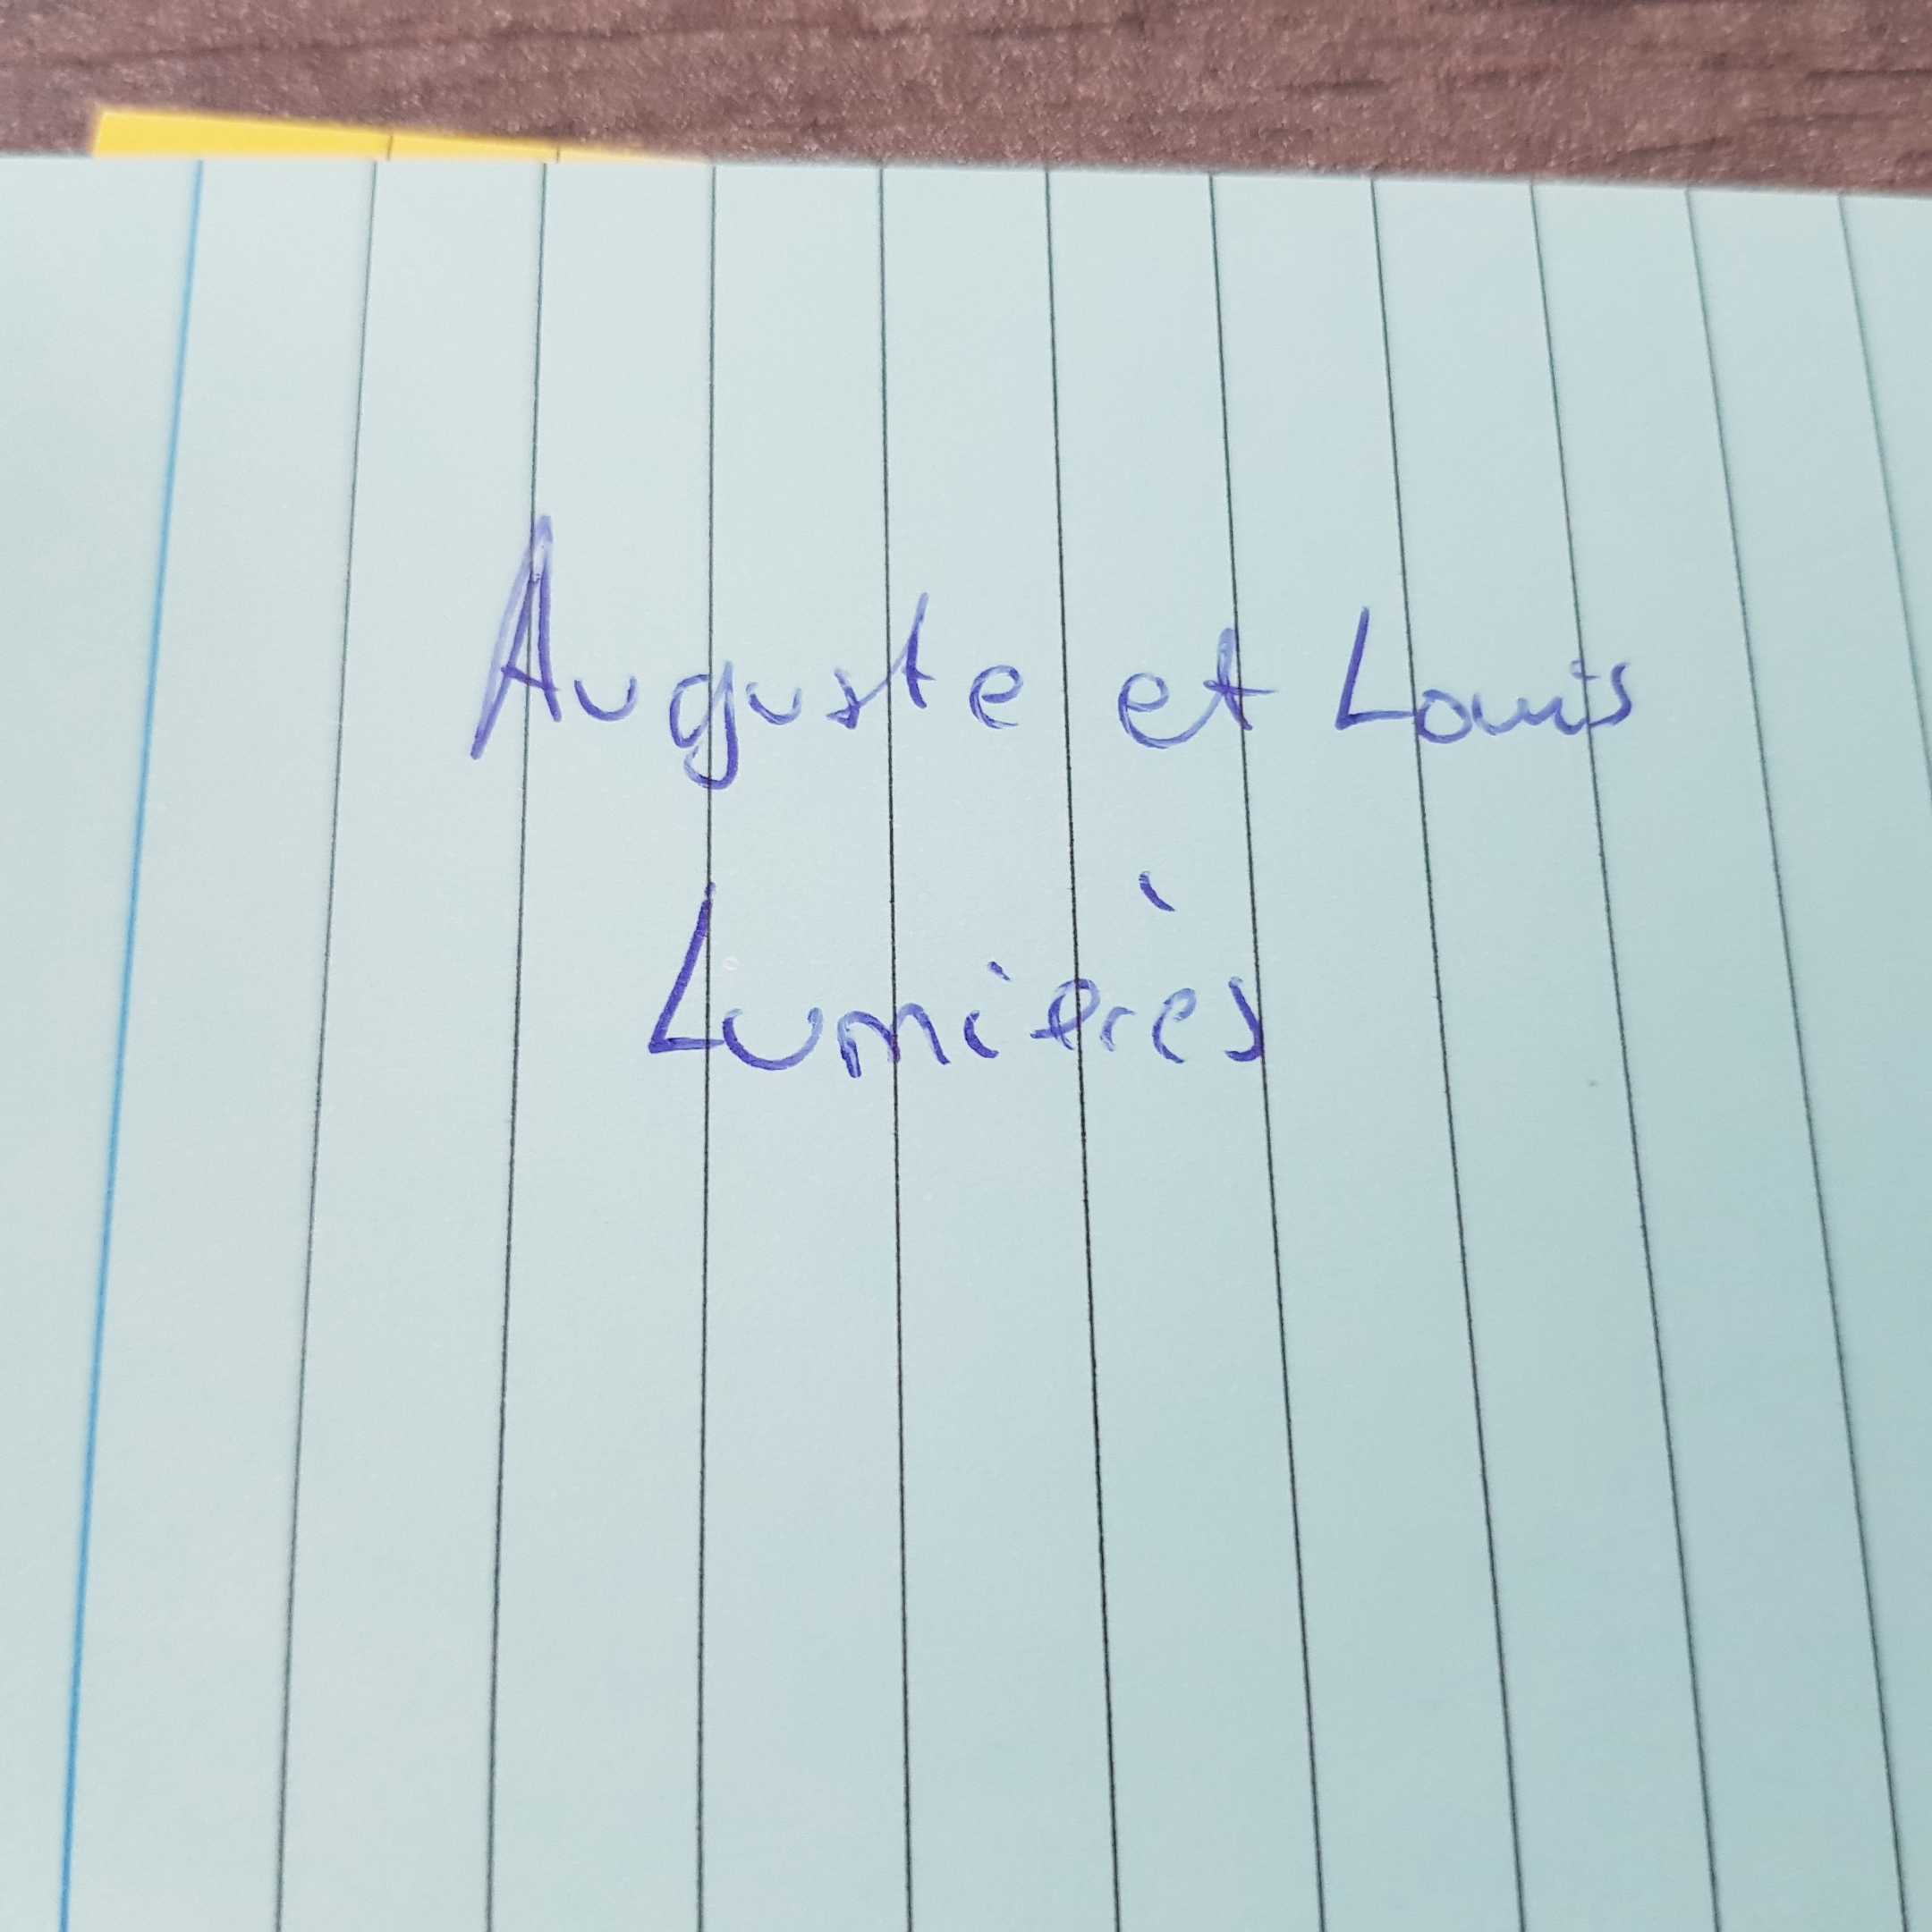 Auguste et Louis
Lumières